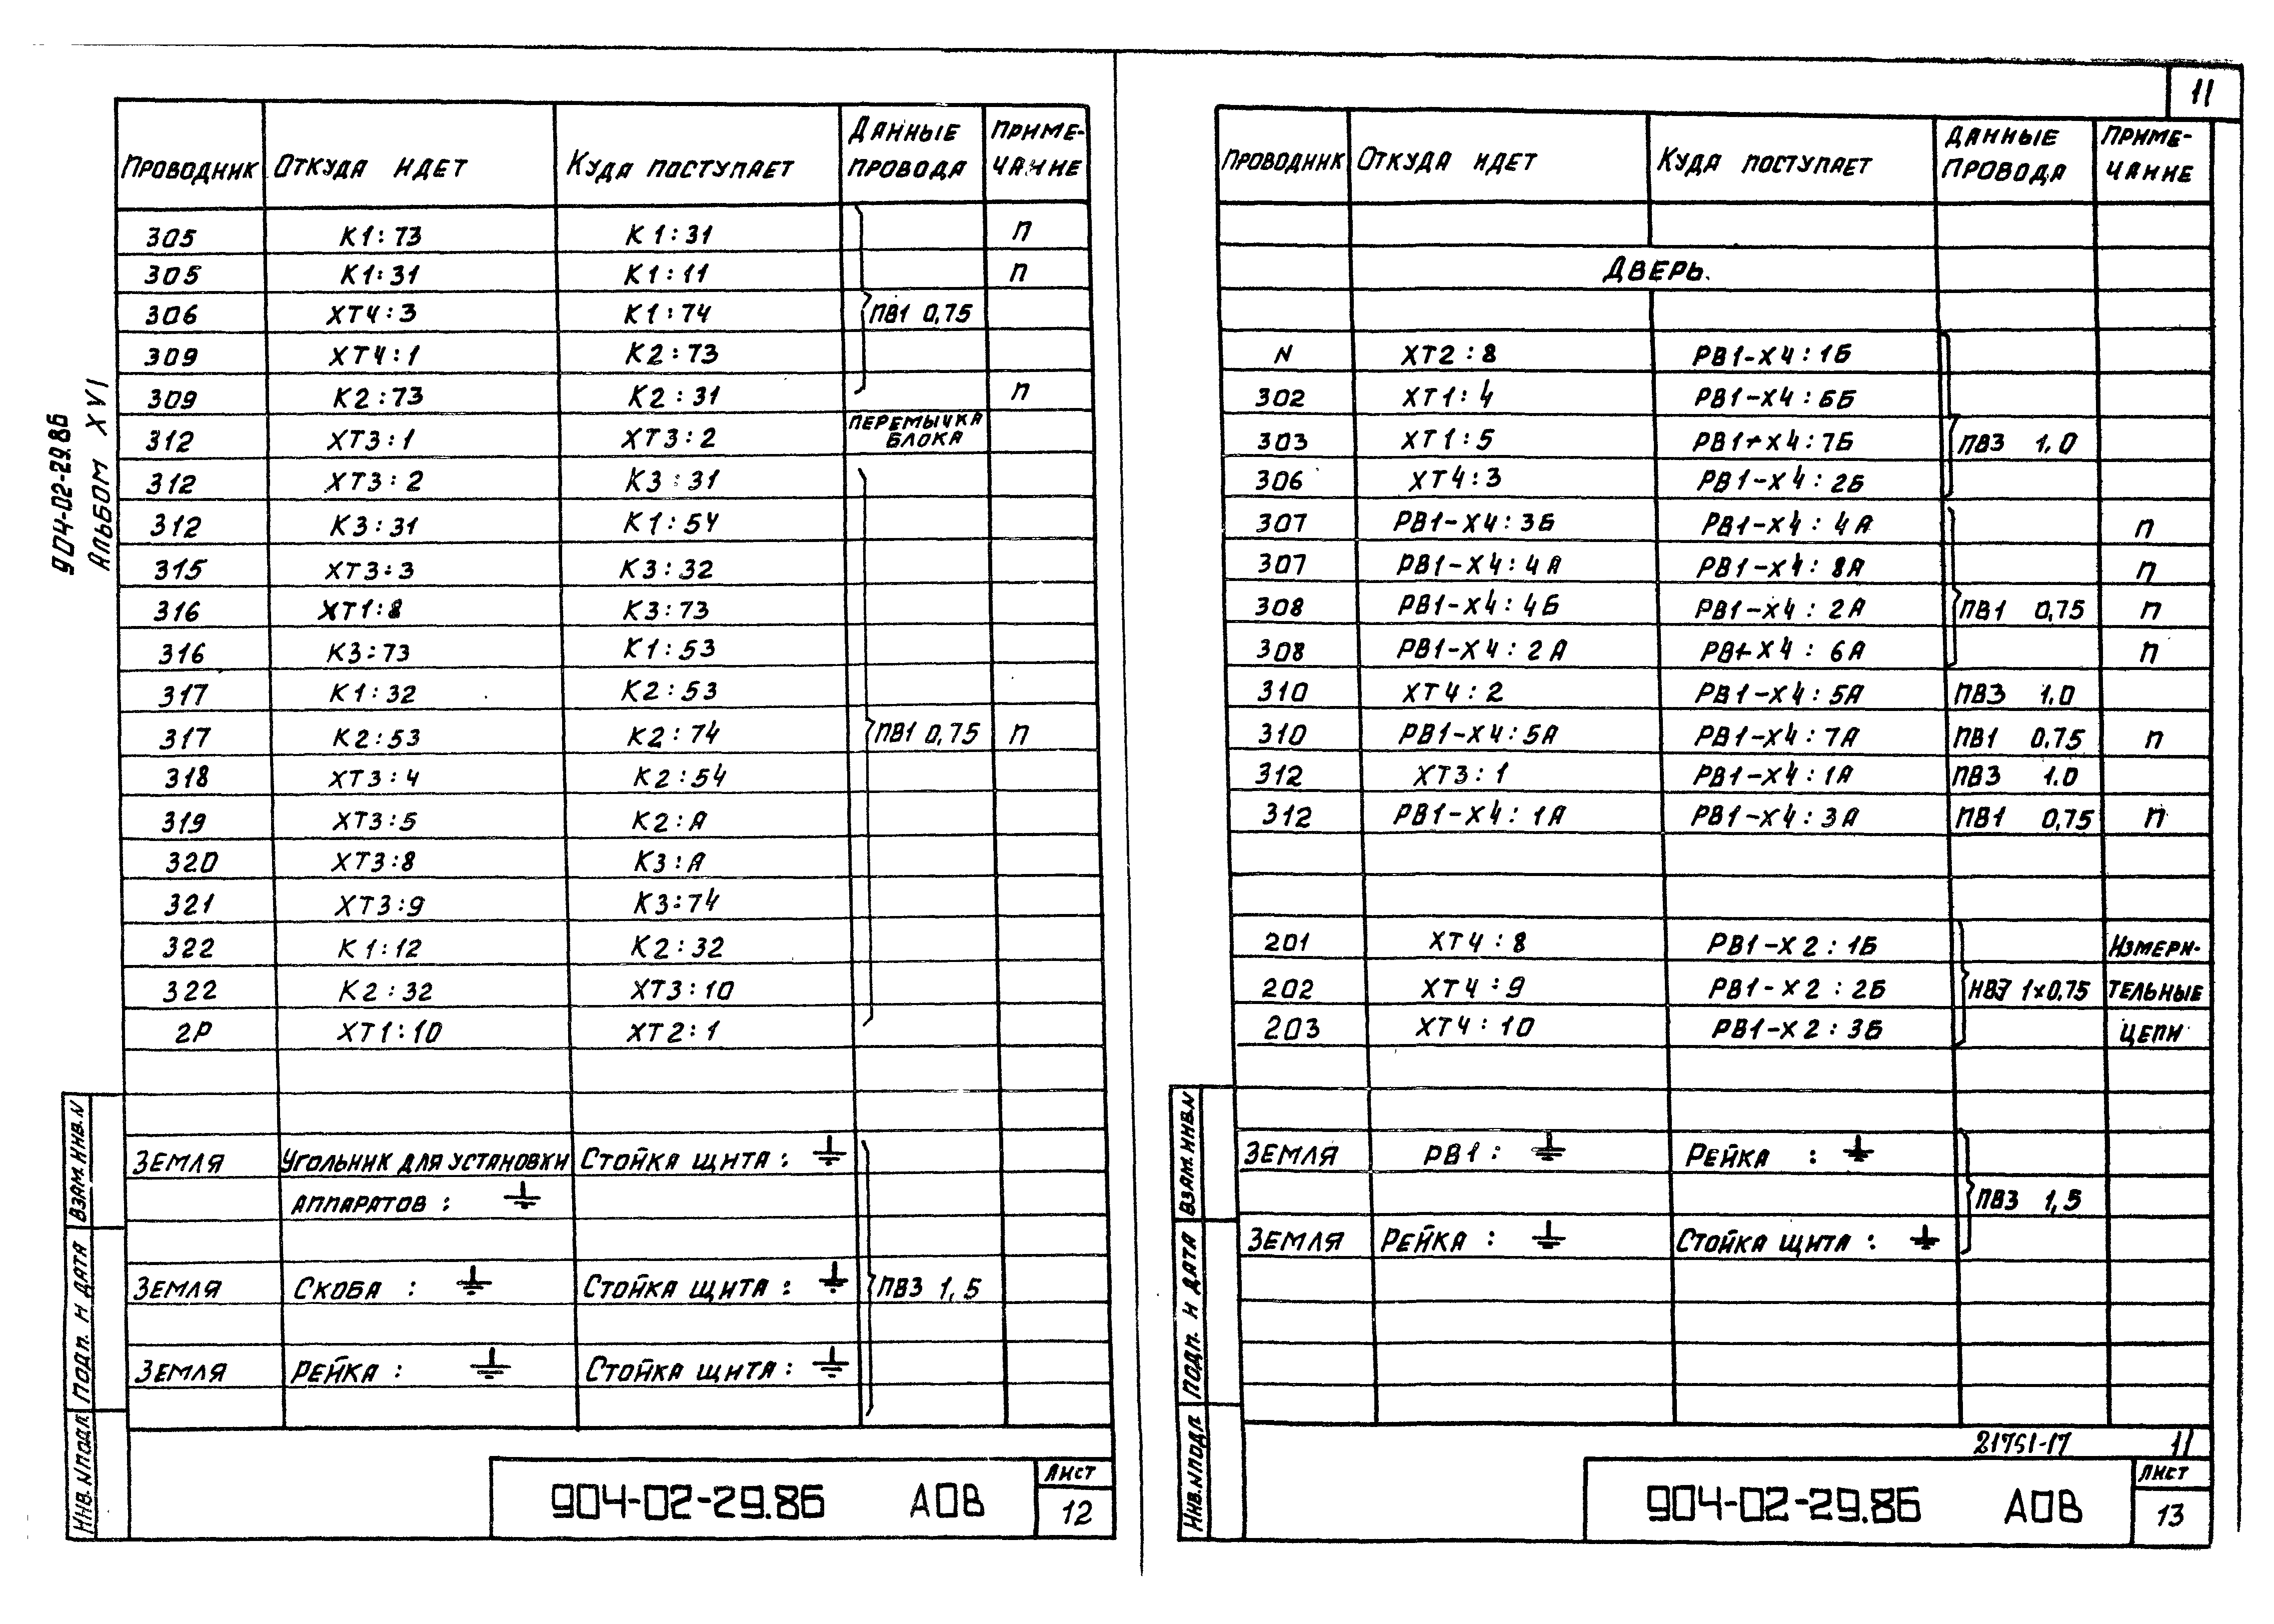 904-02-29.86
Альбом XVI
Проводник | Откуда идет | Куда поступает | Данные провода | Примечание
305 | К1:73 | К1:31 | ПВ1 0,75 | п
305 | К1:31 | К1:11 | п
306 | ХТ4:3 | К1:74
309 | ХТ4:1 | К2:73
309 | К2:73 | К2:31 | п
312 | ХТ3:1 | ХТ3:2 | перемычка блока
312 | ХТ3:2 | К3:31 | ПВ1 0,75
312 | К3:31 | К1:54
315 | ХТ3:3 | К3:32
316 | ХТ1:8 | К3:73
316 | К3:73 | К1:53
317 | К1:32 | К2:53
317 | К2:53 | К2:74 | п
318 | ХТ3:4 | К2:54
319 | ХТ3:5 | К2:А
320 | ХТ3:8 | К3:А
321 | ХТ3:9 | К3:74
322 | К1:12 | К2:32
322 | К2:32 | ХТ3:10
2Р | ХТ1:10 | ХТ2:1
Земля | Угольник для установки | Стойка щита: ⏚ | ПВ3 1,5
аппаратов: ⏚
Земля | Скоба: ⏚ | Стойка щита: ⏚
Земля | Рейка: ⏚ | Стойка щита: ⏚
Взам. инв. N
Подп. и дата
Инв. N подл.
904-02-29.86 АОВ
Лист
12
11
Проводник | Откуда идет | Куда поступает | Данные провода | Примечание
Дверь.
N | ХТ2:8 | РВ1-Х4:1Б | ПВ3 1,0
302 | ХТ1:4 | РВ1-Х4:6Б
303 | ХТ1:5 | РВ1-Х4:7Б
306 | ХТ4:3 | РВ1-Х4:2Б
307 | РВ1-Х4:3Б | РВ1-Х4:4А | ПВ1 0,75 | п
307 | РВ1-Х4:4А | РВ1-Х4:8А | п
308 | РВ1-Х4:4Б | РВ1-Х4:2А | п
308 | РВ1-Х4:2А | РВ1-Х4:6А | п
310 | ХТ4:2 | РВ1-Х4:5А | ПВ3 1.0
310 | РВ1-Х4:5А | РВ1-Х4:7А | ПВ1 0.75 | п
312 | ХТ3:1 | РВ1-Х4:1А | ПВ3 1.0
312 | РВ1-Х4:1А | РВ1-Х4:3А | ПВ1 0,75 | п
201 | ХТ4:8 | РВ1-Х2:1Б | Измери-
202 | ХТ4:9 | РВ1-Х2:2Б | НВЭ 1×0,75 | тельные
203 | ХТ4:10 | РВ1-Х2:3Б | цепи
Земля | РВ1: ⏚ | Рейка: ⏚ | ПВ3 1,5
Земля | Рейка: ⏚ | Стойка щита: ⏚
Взам. инв. N
Подп. и дата
Инв. N подл.
21751-17 11
904-02-29.86 АОВ
Лист
13